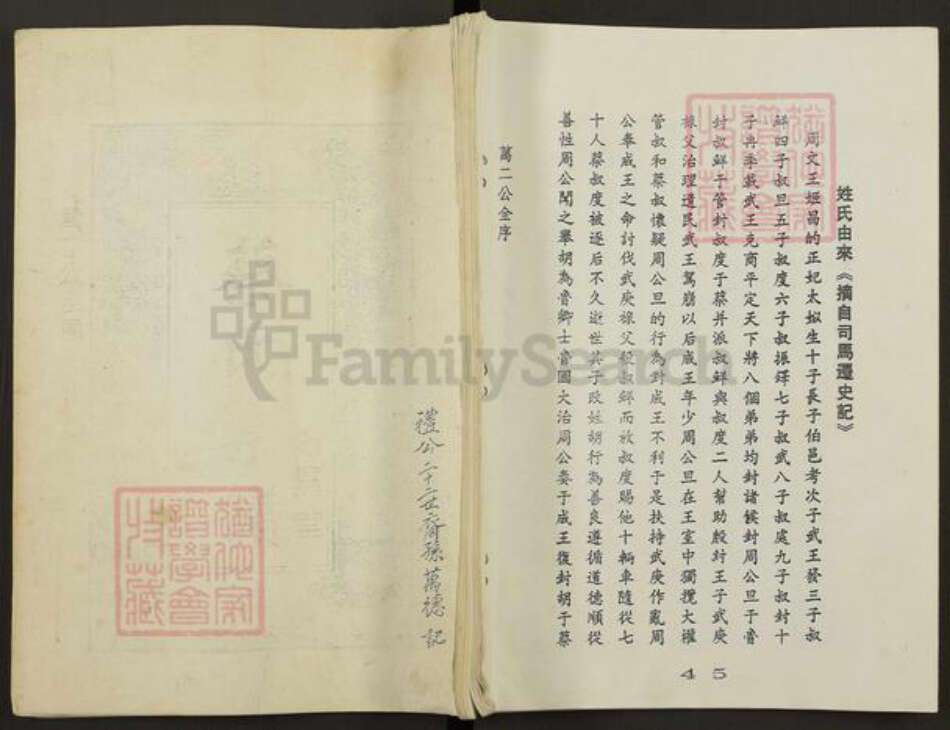 姓氏由來《摘自司馬遷史記》
周文王姬昌的正妃太姒生十子長子伯邑考次子武王發三子叔
鮮四子叔旦五子叔度六子叔振鐸七子叔武八子叔處九子叔封十
子冉季載武王克商平定天下將八個弟弟均封諸侯封周公旦于魯
封叔鮮于管封叔度于蔡并派叔鮮與叔度二人幫助殷紂王子武庚
祿父治理遺民武王駕崩以后成王年少周公旦在王室中獨攬大權
管叔和蔡叔懷疑周公旦的行為對成王不利于是扶持武庚作亂周
公奉成王之命討伐武庚祿父殺叔鮮而放叔度賜他十輛車隨從七
十人蔡叔度被逐后不久逝世其子改姓胡行為善良遵循道德順從
善性周公聞之舉胡為魯卿士魯國大治周公委于成王復封胡于蔡
萬二公全序
45
禮公二十二世裔孫萬德記
FamilySearch
譜學會
收藏